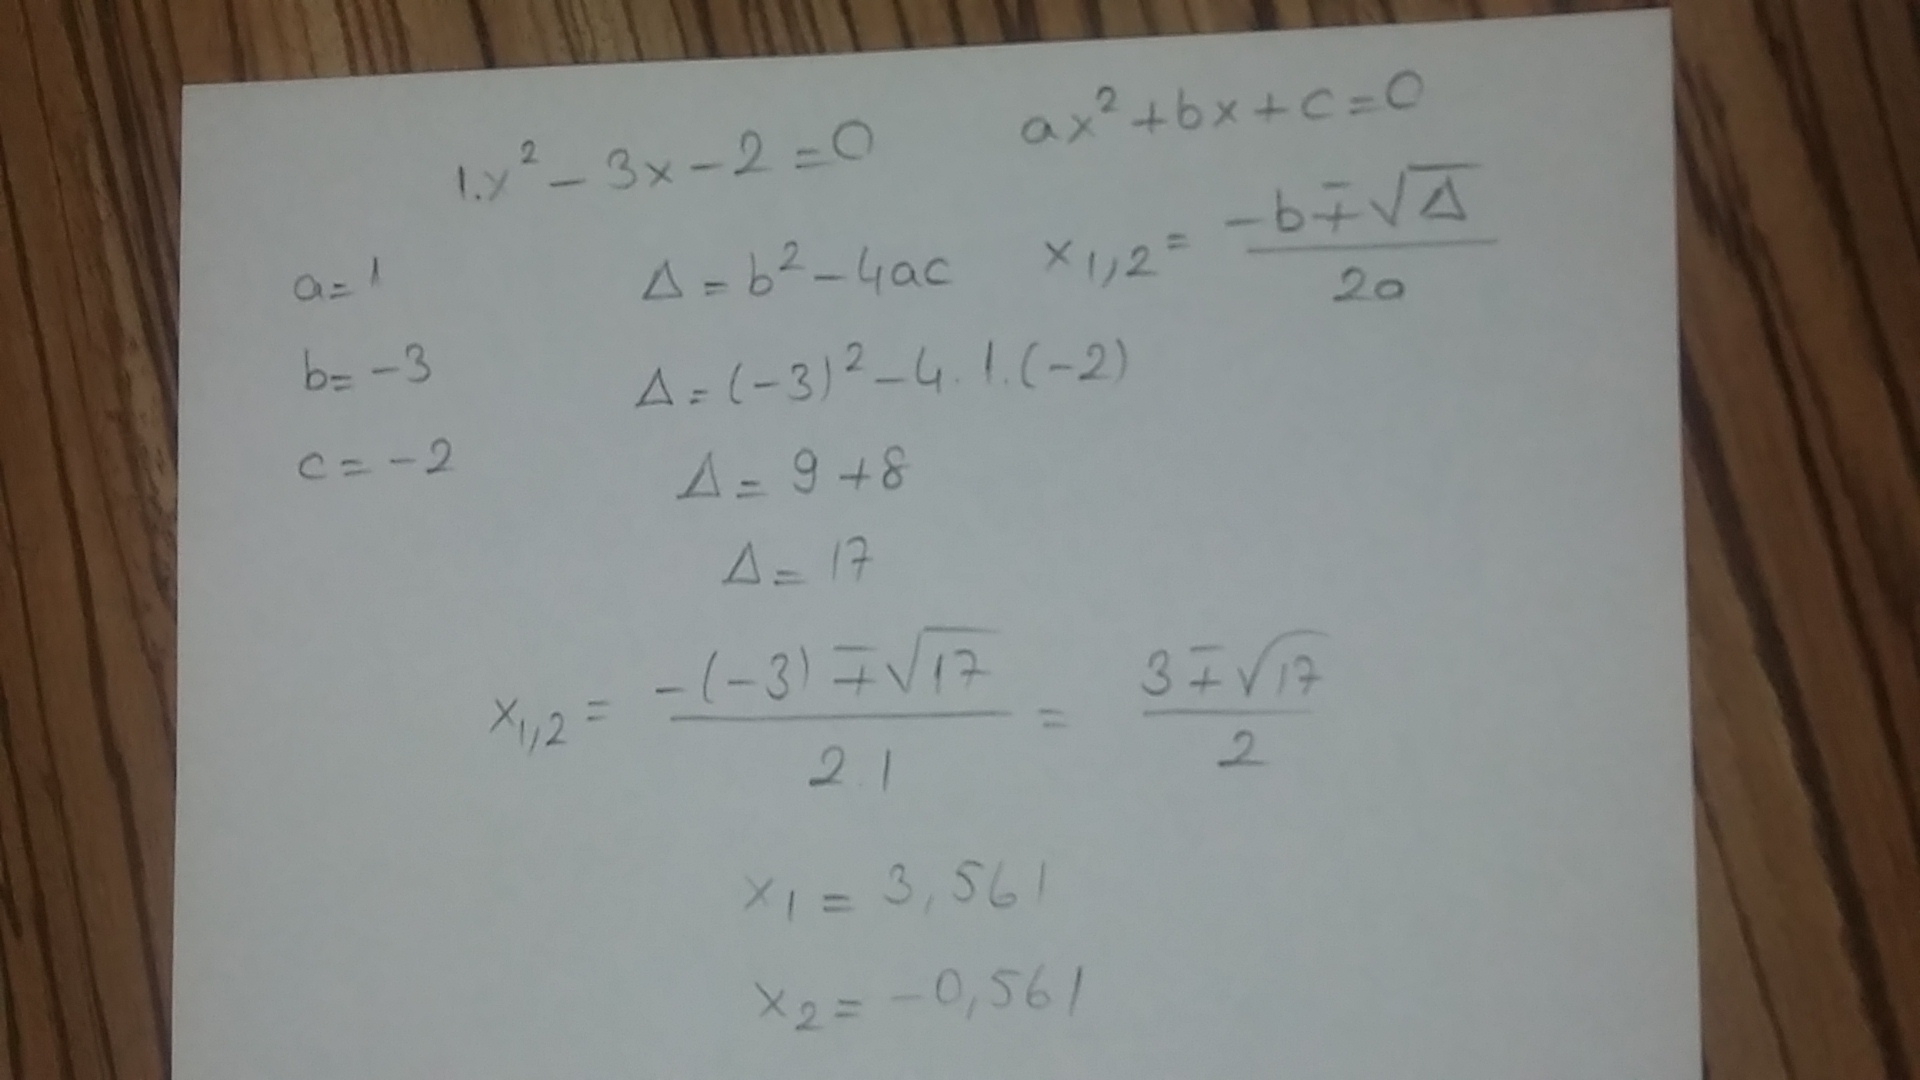 1.x² - 3x - 2 = 0
ax² + bx + c = 0
a = 1
Δ = b² - 4ac
x₁,₂ = (-b ∓ √Δ) / 2a
b = -3
Δ = (-3)² - 4.1.(-2)
c = -2
Δ = 9 + 8
Δ = 17
x₁,₂ = (-(-3) ∓ √17) / 2.1 = (3 ∓ √17) / 2
x₁ = 3,561
x₂ = -0,561